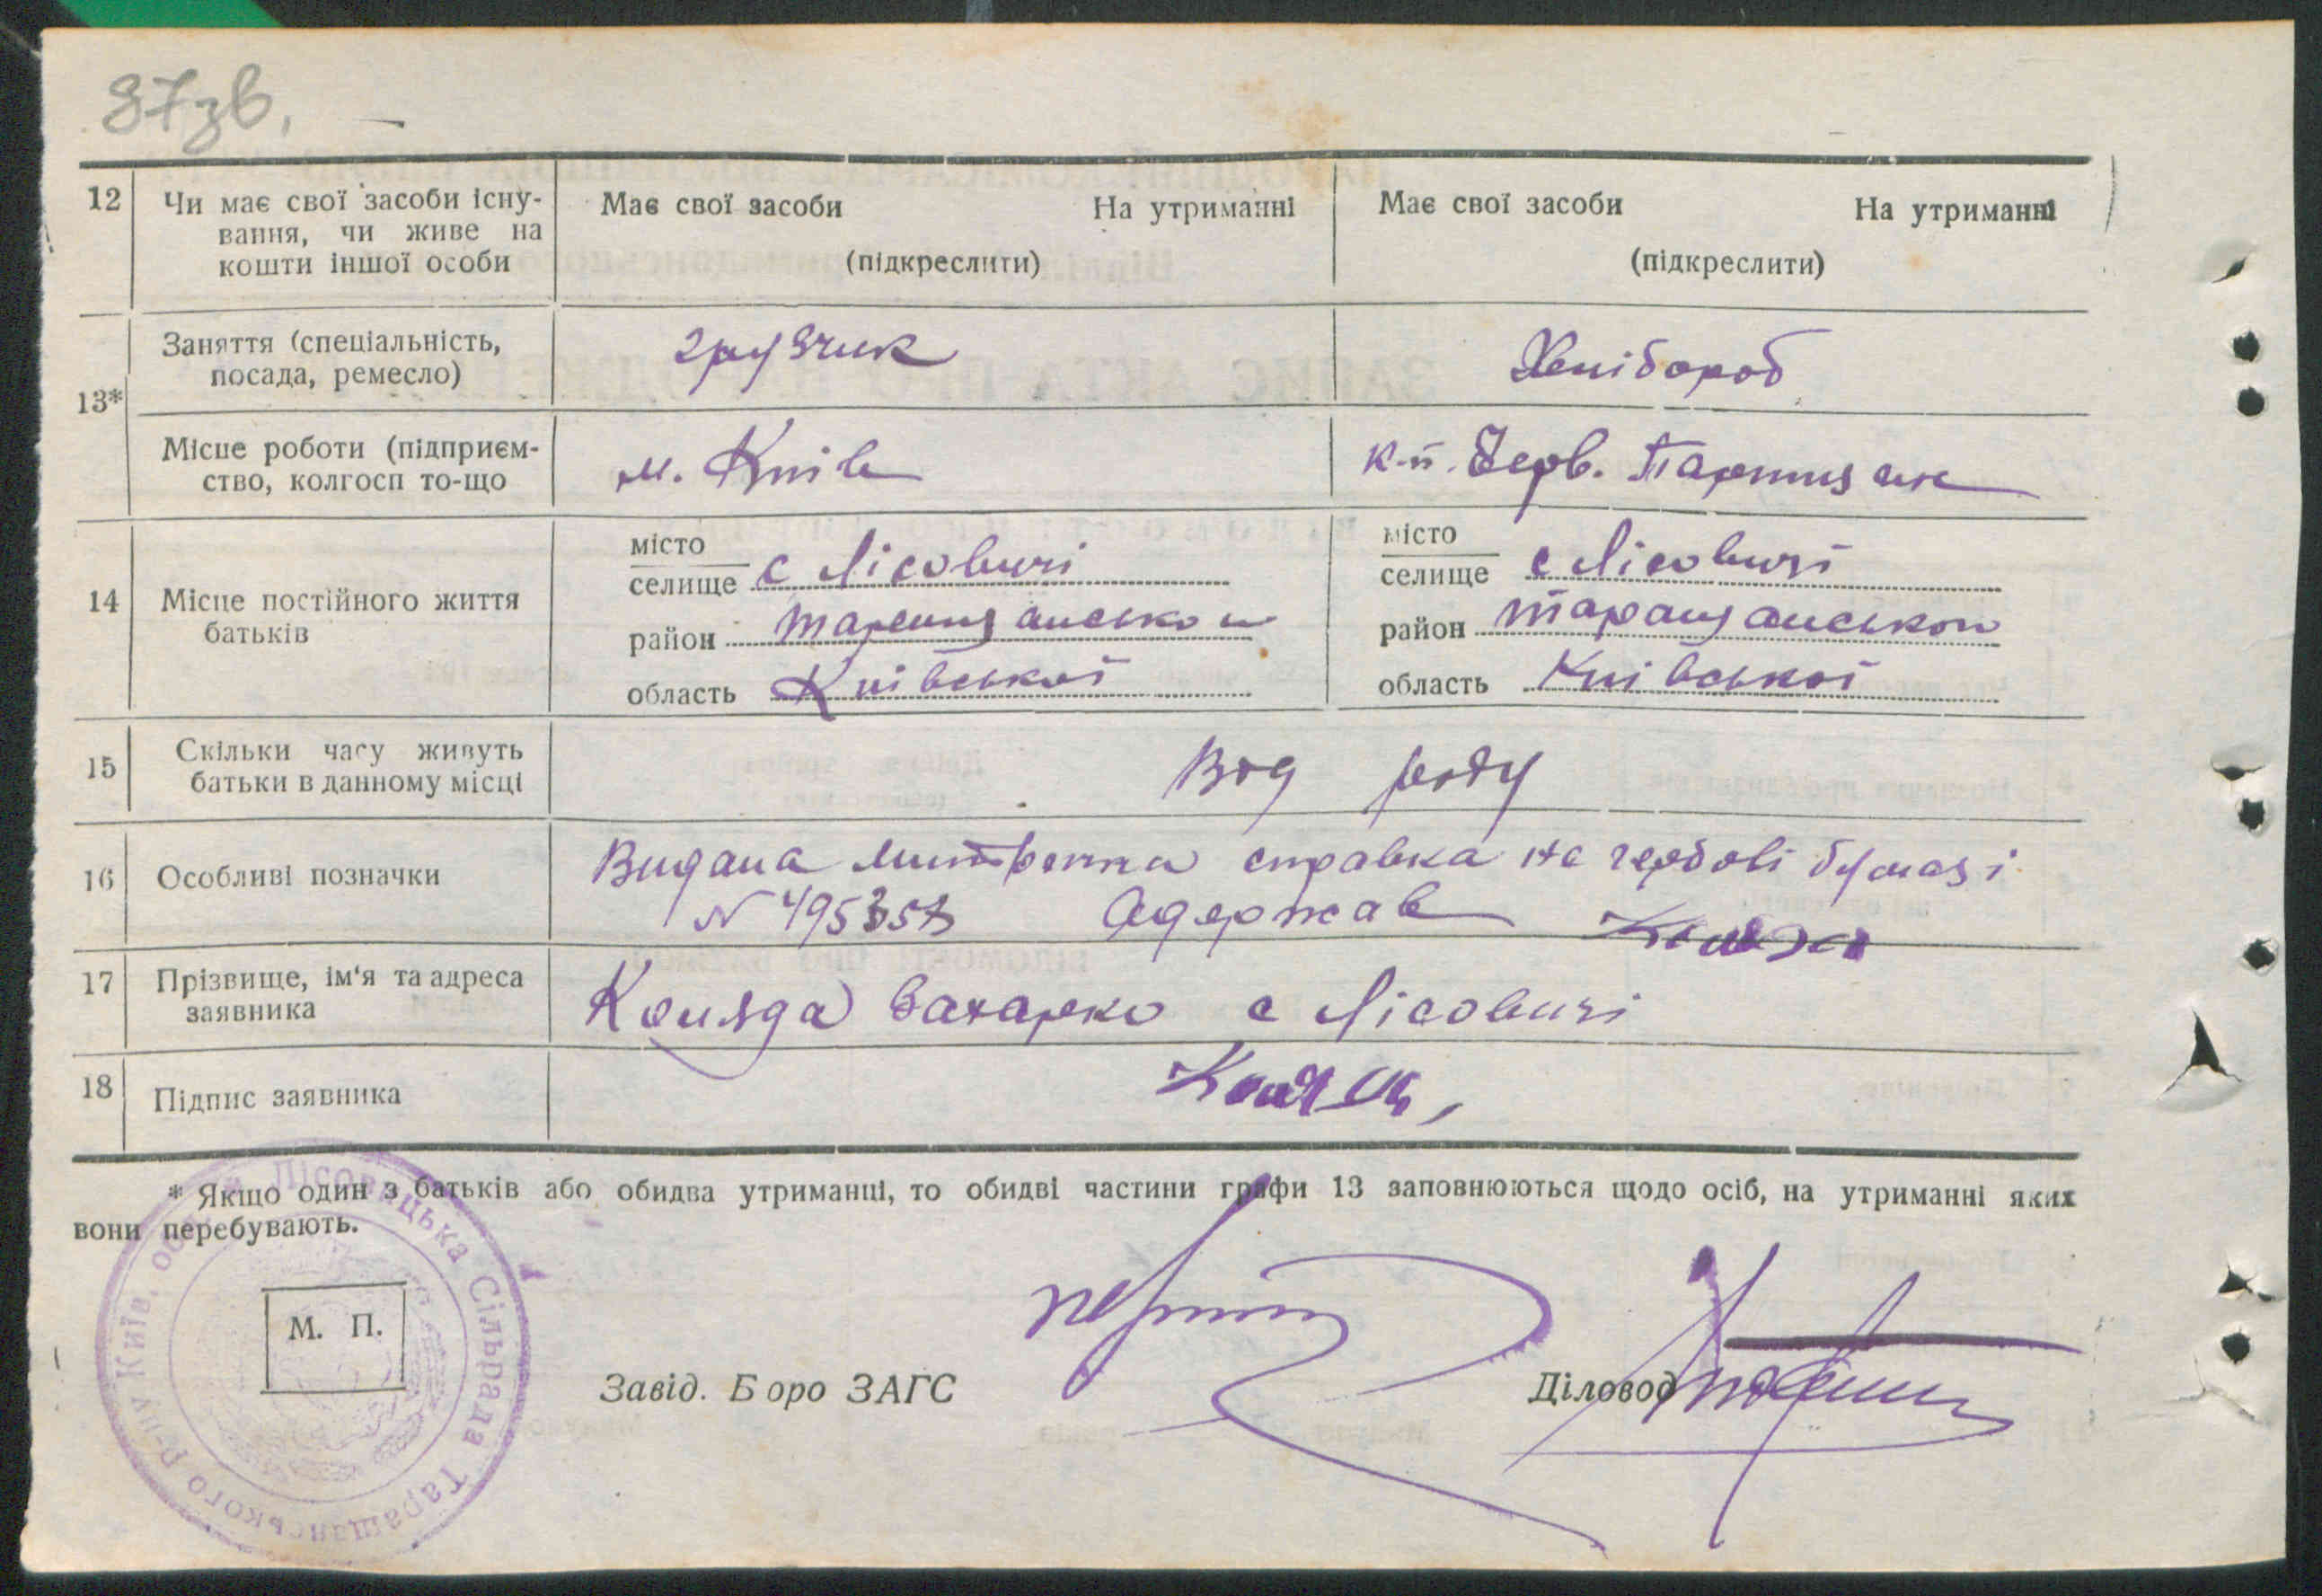 87зв.
12 Чи має свої засоби існу- Має свої засоби На утриманні Має свої засоби На утриманні
вання, чи живе на
кошти іншої особи (підкреслити) (підкреслити)
13* Заняття (спеціальність, грузчик Хлібороб
посада, ремесло)
Місце роботи (підприєм- м. Київ к-п. Черв. Партизан
ство, колгосп то-що
14 Місце постійного життя батьків
місто
селище с Лісовичі
район таращанського
область Київської
місто
селище с Лісовичі
район таращанського
область Київської
15 Скільки часу живуть Від роду
батьки в данному місці
16 Особливі позначки Видана справка на гербові бумазі
N Одержав
17 Прізвище, ім'я та адреса Коляда Захарко с Лісовичі
заявника
18 Підпис заявника
* Якщо один з батьків або обидва утриманці, то обидві частини графи 13 заповнюються щодо осіб, на утриманні яких
вони перебувають.
Лісовицька Сільрада Таращанського Р-ну Київ. обл.
М. П.
Завід. Б оро ЗАГС Діловод